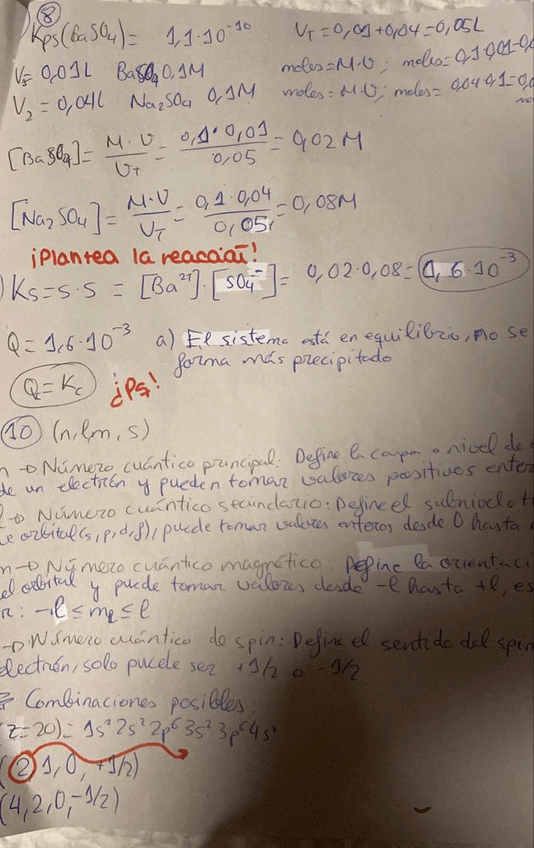 ⑧
Kps(BaSO4) = 1,1·10⁻¹⁰ VT = 0,01+0,04 = 0,05L
V1 = 0,01L BaSO4 0,1M moles = M·V; moles = 0,1·0,01=0,0
V2 = 0,04L Na2SO4 0,1M moles = M·V; moles = 0,04·0,1=0,0
[BaSO4] = M·V/VT = 0,1·0,01/0,05 = 0,02M
[Na2SO4] = M·V/VT = 0,1·0,04/0,05 = 0,08M
¡Plantea la reacción!
) Ks = s·s = [Ba²⁺]·[SO4⁻] = 0,02·0,08 = 1,6·10⁻³
Q = 1,6·10⁻³ a) El sistema está en equilibrio, no se
forma más precipitado
Qc = Kc ¿Pq!
⑩ (n, l, m, s)
n → Número cuántico principal: Define la capa o nivel de
de un electrón y pueden tomar valores positivos enter
l → Número cuántico secundario: Define el subnivel o t
e orbital (s, p, d, f), puede tomar valores enteros desde 0 hasta
m → Número cuántico magnético: Define la orientaci
el orbital y puede tomar valores desde -l hasta +l, es
r: -l ≤ ml ≤ l
→ Número cuántico de spin: Define el sentido del spin
electrón, solo puede ser +1/2 o -1/2
Combinaciones posibles:
(Z=20) = 1s² 2s² 2p⁶ 3s² 3p⁶ 4s²
(2, 1, 0, +1/2)
(4, 2, 0, -1/2)